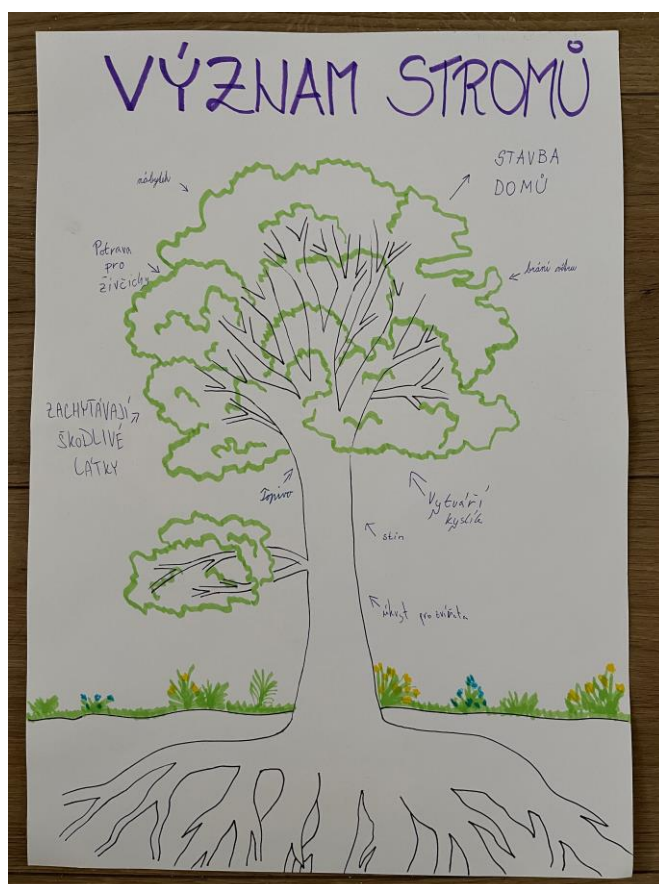 VÝZNAM STROMŮ
nábytek
STAVBA
DOMŮ
Potrava
pro
živčichy
brání větru
ZACHYTÁVAJÍ
ŠKODLIVÉ
LÁTKY
Topivo
Vytváří
kyslík
stín
úkryt pro zvířata